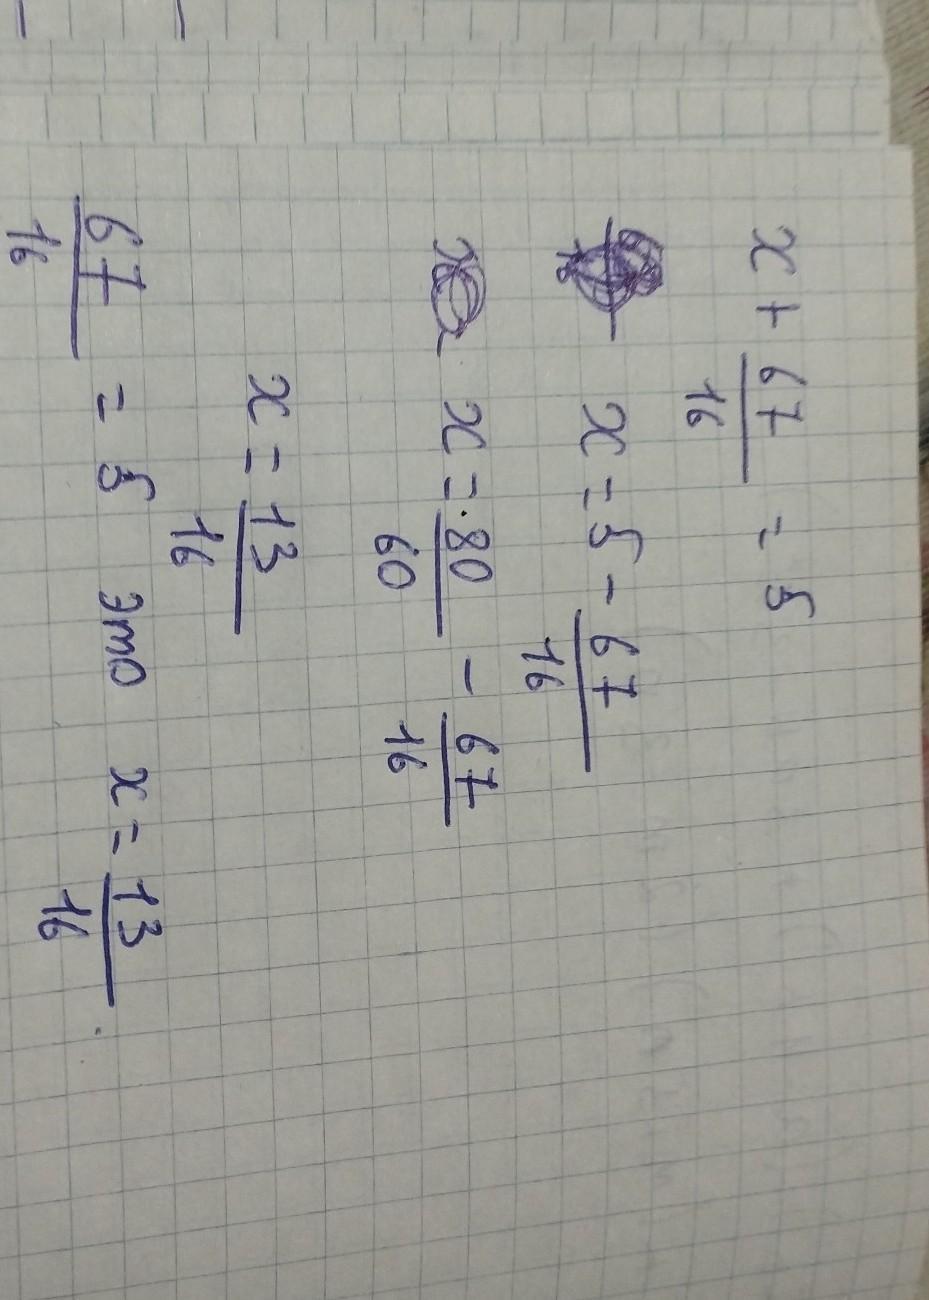 x + 67/16 = 5
x = 5 - 67/16
x = 80/60 - 67/16
x = 13/16
67/16 = 5 это x = 13/16.